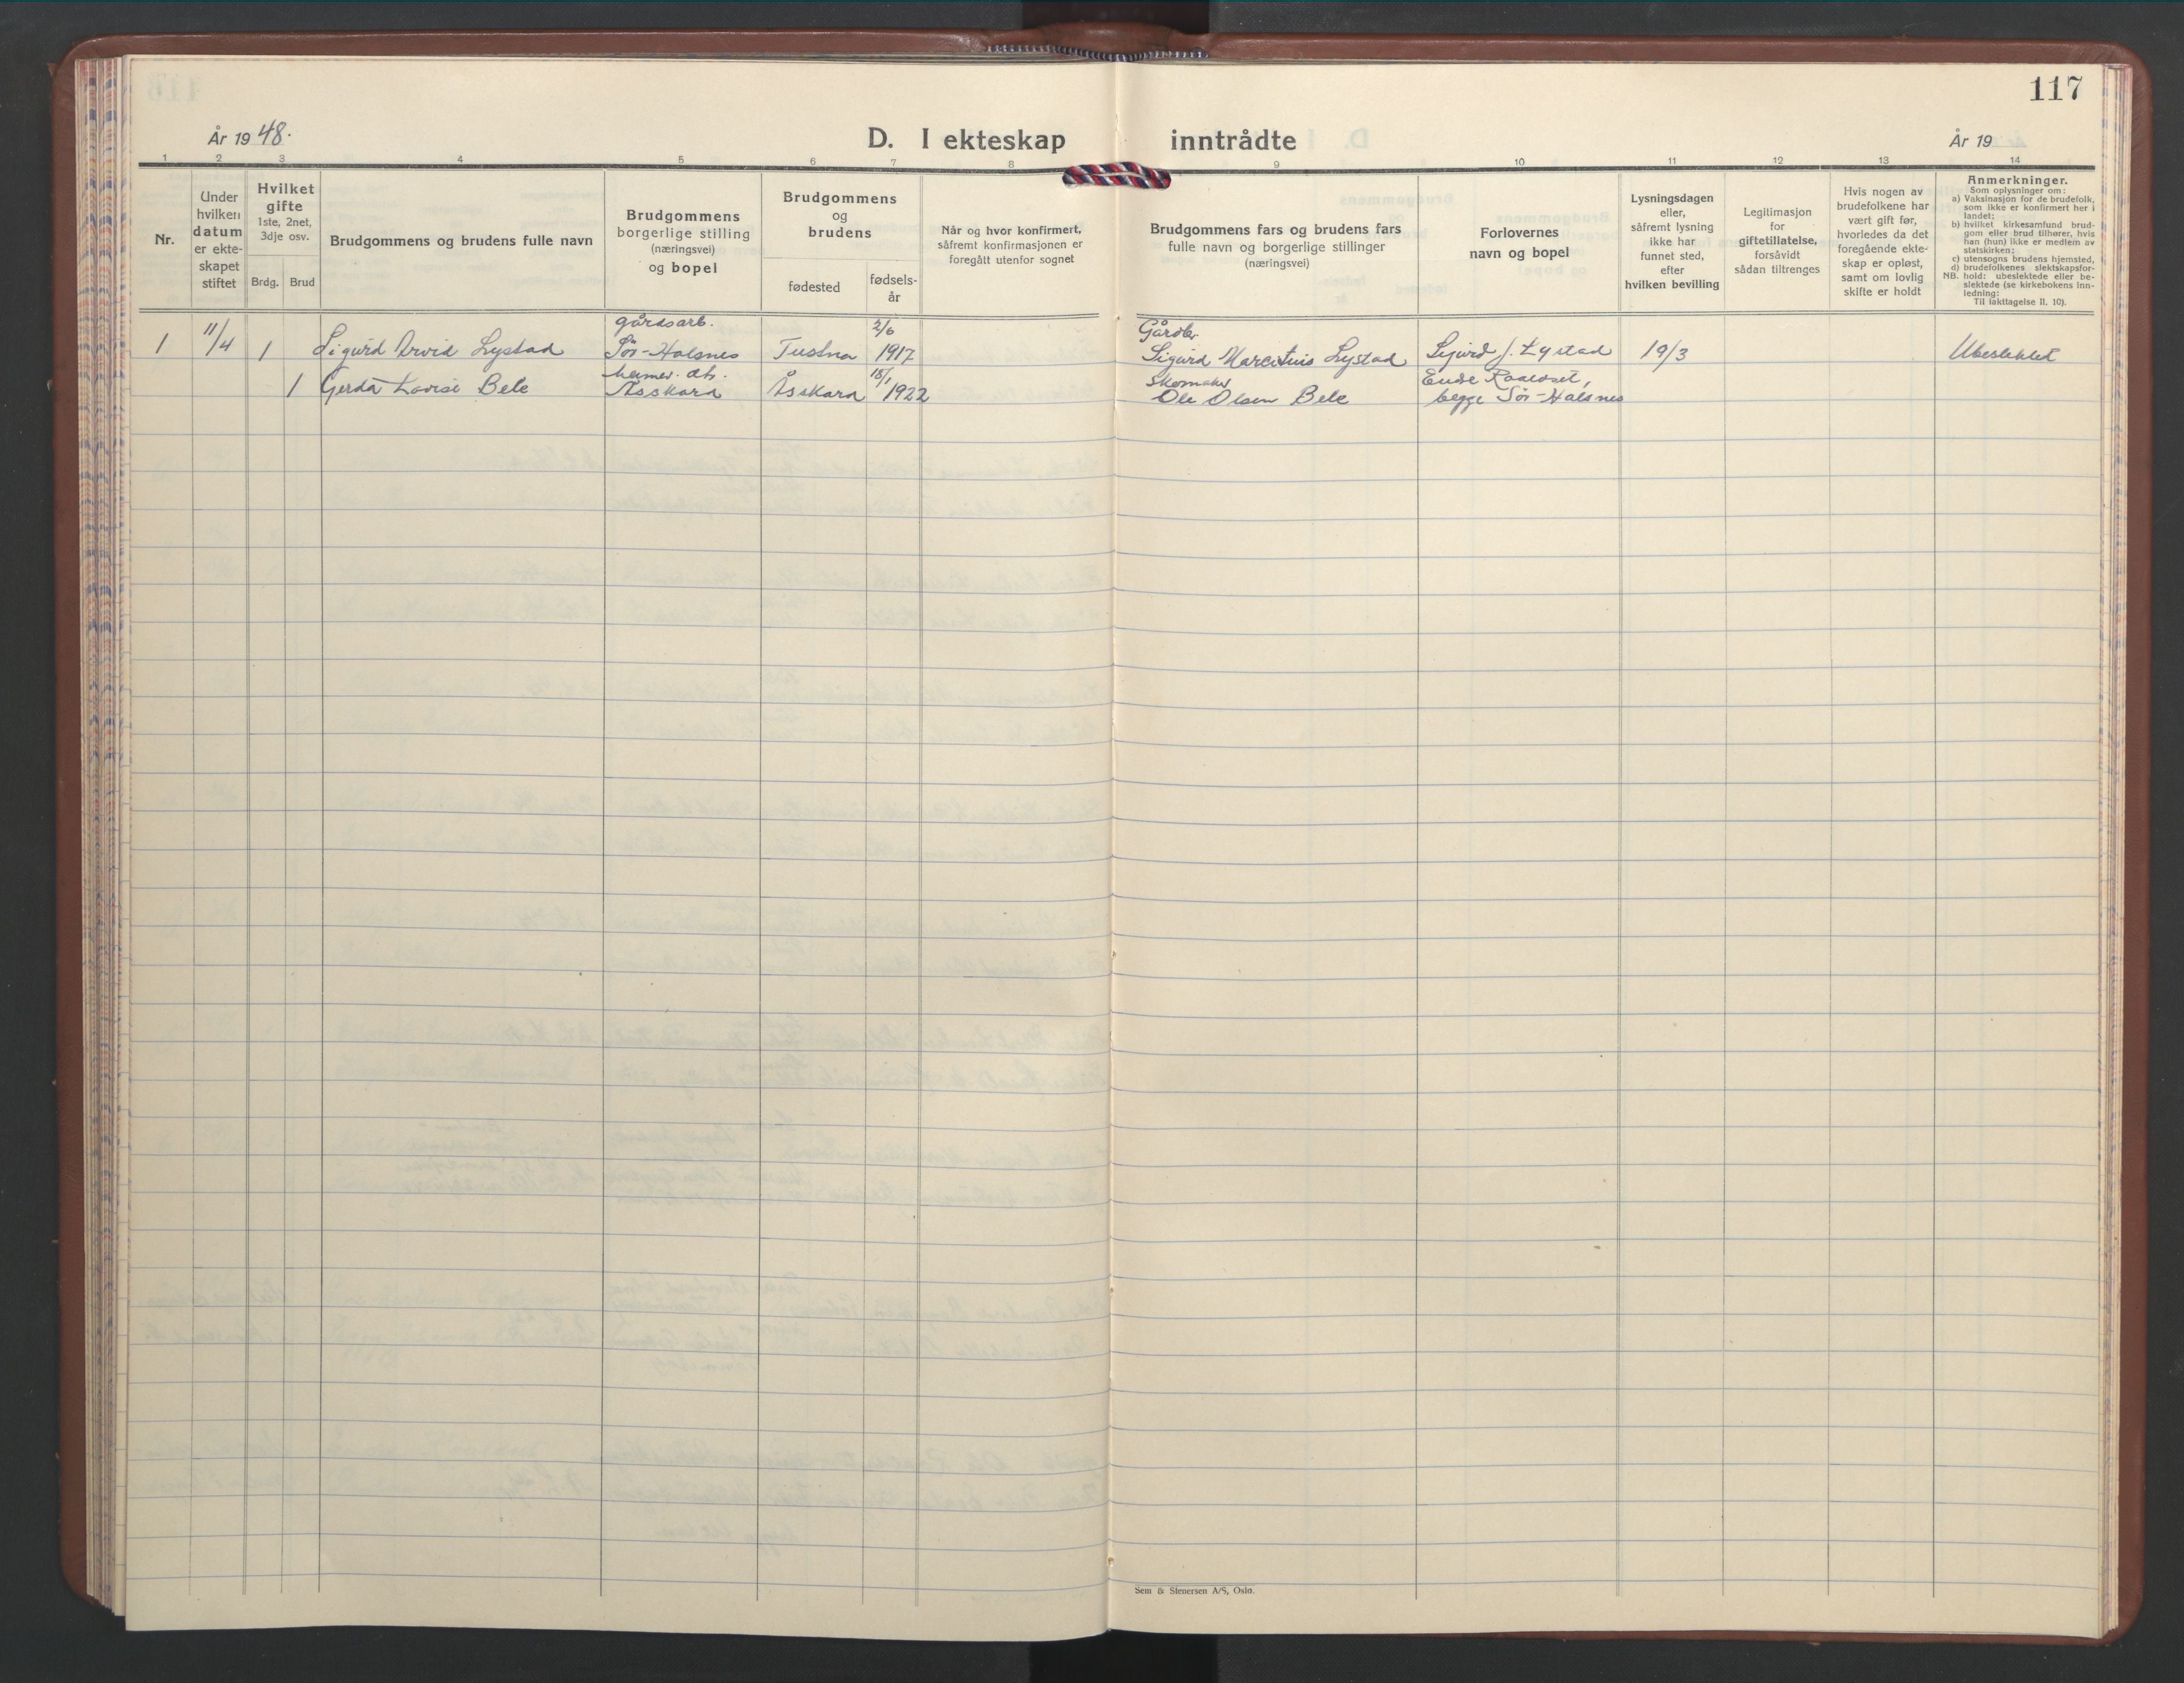 117
År 1948.
D. I ekteskap inntrådte
År 19
1 2 3 4 5 6 7 8 9 10 11 12 13 14
Nr.
Under
hvilken
datum
er ekte-
skapet
stiftet
Hvilket
gifte
1ste, 2net,
3dje osv.
Brdg. Brud
Brudgommens og brudens fulle navn
Brudgommens
borgerlige stilling
(næringsvei)
og bopel
Brudgommens
og
brudens
fødested
fødsels-
år
Når og hvor konfirmert,
såfremt konfirmasjonen er
foregått utenfor sognet
Brudgommens fars og brudens fars
fulle navn og borgerlige stillinger
(næringsvei)
Forlovernes
navn og bopel
Lysningsdagen
eller,
såfremt lysning
ikke har
funnet sted,
efter
hvilken bevilling
Legitimasjon
for
giftetillatelse,
forsåvidt
sådan tiltrenges
Hvis nogen av
brudefolkene har
vært gift før,
hvorledes da det
foregående ekte-
skap er opløst,
samt om lovlig
skifte er holdt
Anmerkninger.
Som oplysninger om:
a) Vaksinasjon for de brudefolk,
som ikke er konfirmert her i
landet;
b) hvilket kirkesamfund brud-
gom eller brud tilhører, hvis
han (hun) ikke er medlem av
statskirken;
c) utensogns brudens hjemsted,
d) brudefolkenes slektskapsfor-
NB. hold: ubeslektede eller be-
slektede (se kirkebokens inn-
ledning:
Til iakttagelse II. 10).
gårdsarb. 2/6 Gårdbr.
1 11/4 1 Sigurd Arvid Lystad Sør-Halsnes Tustna 1917 Sigurd Marentius Lystad Sigurd J. Lystad 19/3 Ubeslektet
heimev. dtr. 18/1 Skomaker
1 Gerda Lovise Bele Åsskard Åsskard 1922 Ole Olsen Bele begge Sør-Halsnes
Sem & Stenersen A/S, Oslo.